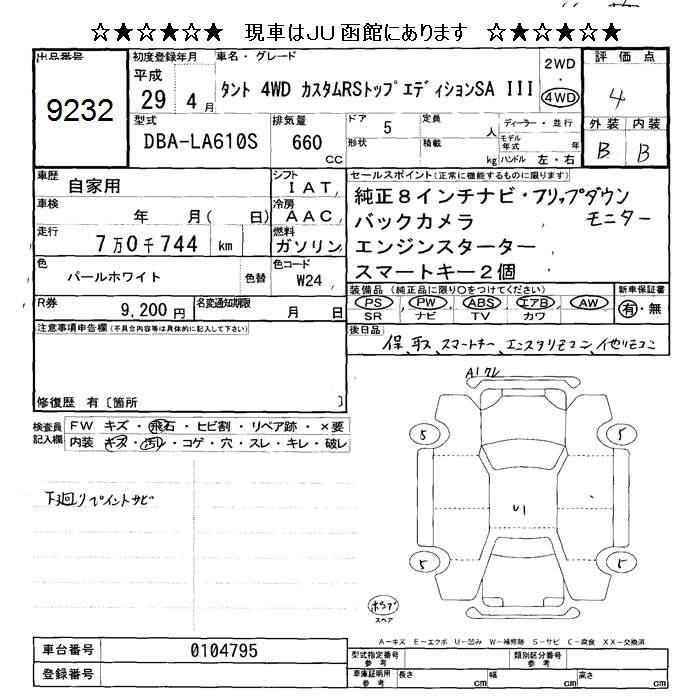 ☆★☆★☆★ 現車はJU函館にあります ☆★☆★☆★
出品番号
9232
初度登録年月
平成
29 4月
車名・グレード
タント 4WD カスタムRSトップエディションSA III
2WD
・
4WD
評価点
4
型式
DBA-LA610S
排気量
660
CC
ドア 5
形状
定員 人
積載 kg
ディーラー・並行
モデル年式 年
ハンドル 左・右
外装 内装
B B
車歴
自家用
シフト
IAT
車検
年 月( 日)
冷房
AAC
走行
7万0千744 km
燃料
ガソリン
色
パールホワイト
色替
色コード
W24
R券
9,200円
名変通知期限
月 日
セールスポイント(正常に機能するものに限ります)
純正8インチナビ・フリップダウン
モニター
バックカメラ
エンジンスターター
スマートキー2個
装備品 (純正品に限り○をつけてください)
PS PW ABS エアB AW
SR ナビ TV カワ
新車保証書
有・無
後日品
保、取、スマートキー、エンスタリモコン、
注意事項申告欄(不具合内容等は具体的に記入して下さい)
修復歴 有〔箇所 〕
検査員
記入欄
FW キズ・飛石・ヒビ割・リペア跡・×要
内装 キズ・汚レ・コゲ・穴・スレ・キレ・破レ
下廻りペイントサビ
A1
5
5
U1
5
5
スペア
A-キズ E-エクボ U-凹み W-補修跡 S-サビ C-腐食 XX-交換済
車台番号
0104795
登録番号
型式指定番号
参考
類別区分番号
参考
車庫証明用
参考
長さ cm
幅 cm
高さ cm